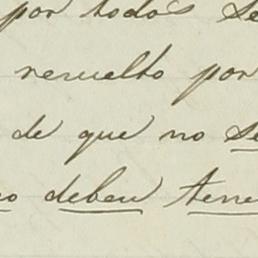 por todos se
resuelto por
de que no se
o deben tene